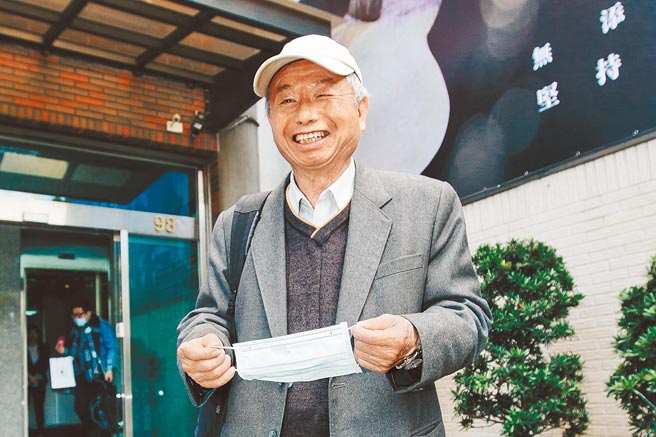 無添
堅持
98